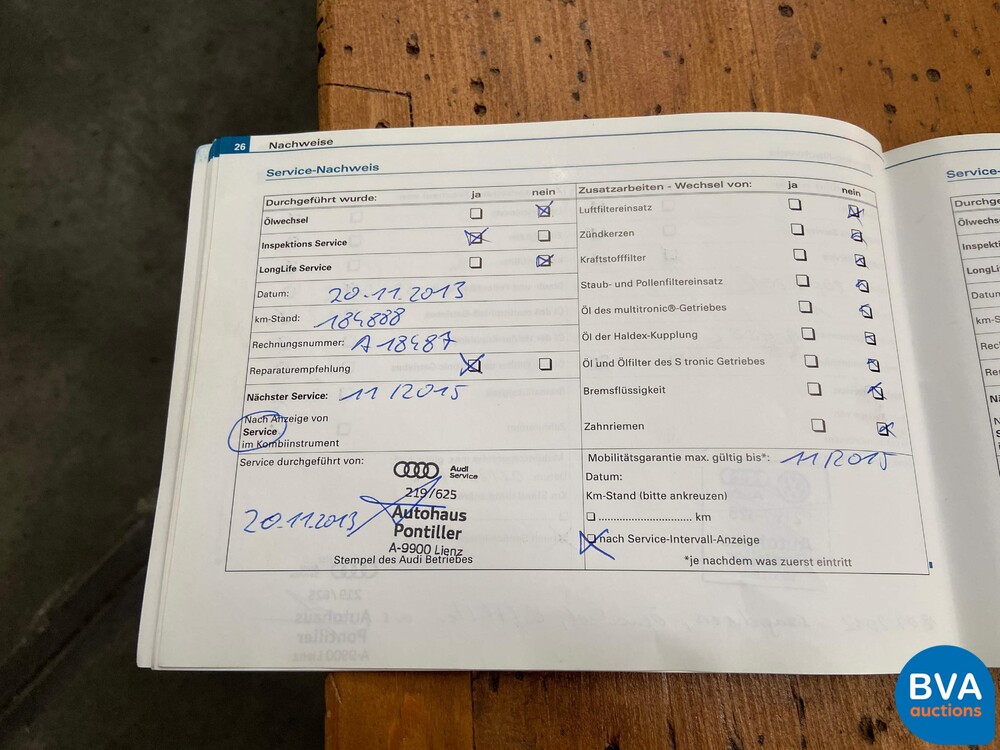 26 Nachweise
Service-Nachweis
Durchgeführt wurde: ja nein
Ölwechsel
Inspektions Service
LongLife Service
Datum: 20.11.2013
km-Stand: 184888
Rechnungsnummer: A 18487
Reparaturempfehlung
Nächster Service: 11/2015
Nach Anzeige von
Service
im Kombiinstrument
Zusatzarbeiten - Wechsel von: ja nein
Luftfiltereinsatz
Zündkerzen
Kraftstofffilter
Staub- und Pollenfiltereinsatz
Öl des multitronic®-Getriebes
Öl der Haldex-Kupplung
Öl und Ölfilter des S tronic Getriebes
Bremsflüssigkeit
Zahnriemen
Service durchgeführt von:
Audi
Service
219/625
20.11.2013
Autohaus
Pontiller
A-9900 Lienz
Stempel des Audi Betriebes
Mobilitätsgarantie max. gültig bis*: 11/2015
Datum:
Km-Stand (bitte ankreuzen)
............................... km
nach Service-Intervall-Anzeige
*je nachdem was zuerst eintritt
Service-
Durchge
Ölwechs
Inspekti
LongLi
Datum
km-S
Rec
Re
BVA
auctions